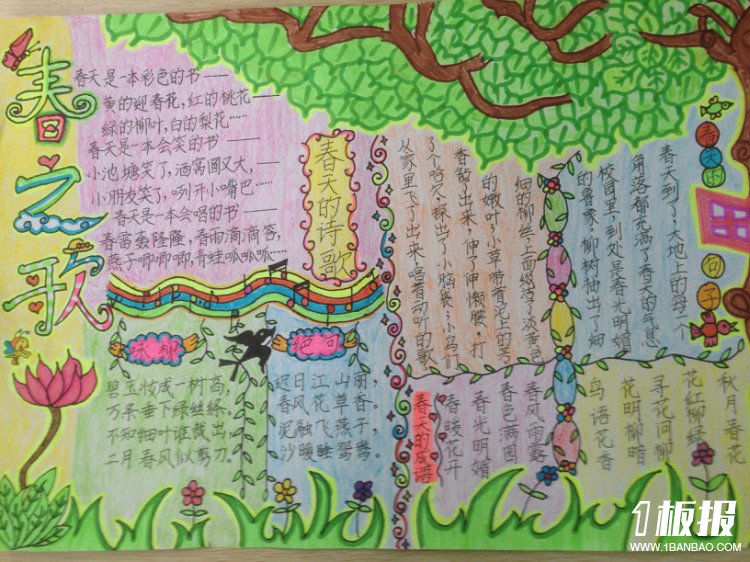 春之歌
春天是一本彩色的书——
黄的迎春花,红的桃花——
绿的柳叶,白的梨花……
春天是一本会笑的书——
小池塘笑了,酒窝圆又大,——
小朋友笑了,咧开小嘴巴……
春天是一本会唱的书——
春雷轰隆隆,春雨滴滴答,
燕子唧唧唧,青蛙呱呱呱……
春天的诗歌
咏柳
碧玉妆成一树高,
万条垂下绿丝绦。
不知细叶谁裁出,
二月春风似剪刀。
绝句
迟日江山丽,
春风花草香。
泥融飞燕子,
沙暖睡鸳鸯。
春天的句子
春天到了!大地上的每一个
角落都充满了春天的气息
校园里,到处是春光明媚
的景象。柳树抽出了细
细的柳丝,上面缀满了淡黄色
的嫩叶;小草带着泥土的芳
香钻了出来,伸了伸懒腰,打
了个哈欠,探出了小脑袋;小鸟们
从家里飞了出来,唱着动听的歌
春天的成语
秋月春花
花红柳绿
寻花问柳
花明柳暗
鸟语花香
春风雨露
春色满园
春光明媚
春暖花开
1板报
WWW.1BANBAO.COM